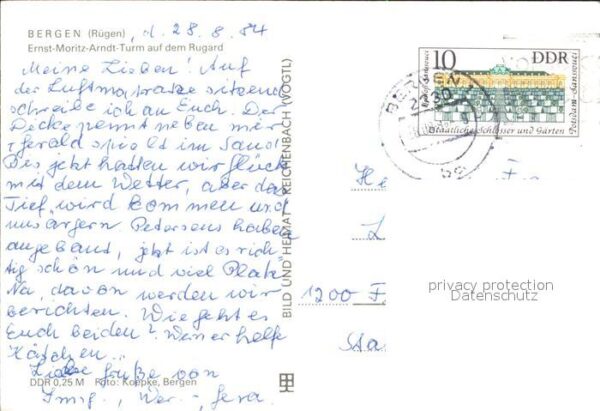 BERGEN (Rügen) , d. 28. 8. 84
Ernst-Moritz-Arndt-Turm auf dem Rugard
Meine Lieben! Auf
der Luftmatratze sitzend
schreibe ich an Euch. Der
Dicke pennt neben mir
Gerald spielt im Sand!
Bis jetzt hatten wir Glück
mit dem Wetter, aber das
Tief wird kommen und
uns ärgern. Petersens haben
angebaut, jetzt ist es rich-
tig schön und viel Platz
Na, davon werden wir
berichten. Wie geht es
Euch beiden?
Käschen...
Liebe Grüße von
DDR 0,25 M Foto: Koepke, Bergen
BILD UND HEIMAT REICHENBACH (VOGTL)
10 DDR
Potsdam-Sanssouci
Staatliche Schlösser und Gärten
BERGEN 1
2330
He
F
L
1200 F
privacy protection
Datenschutz